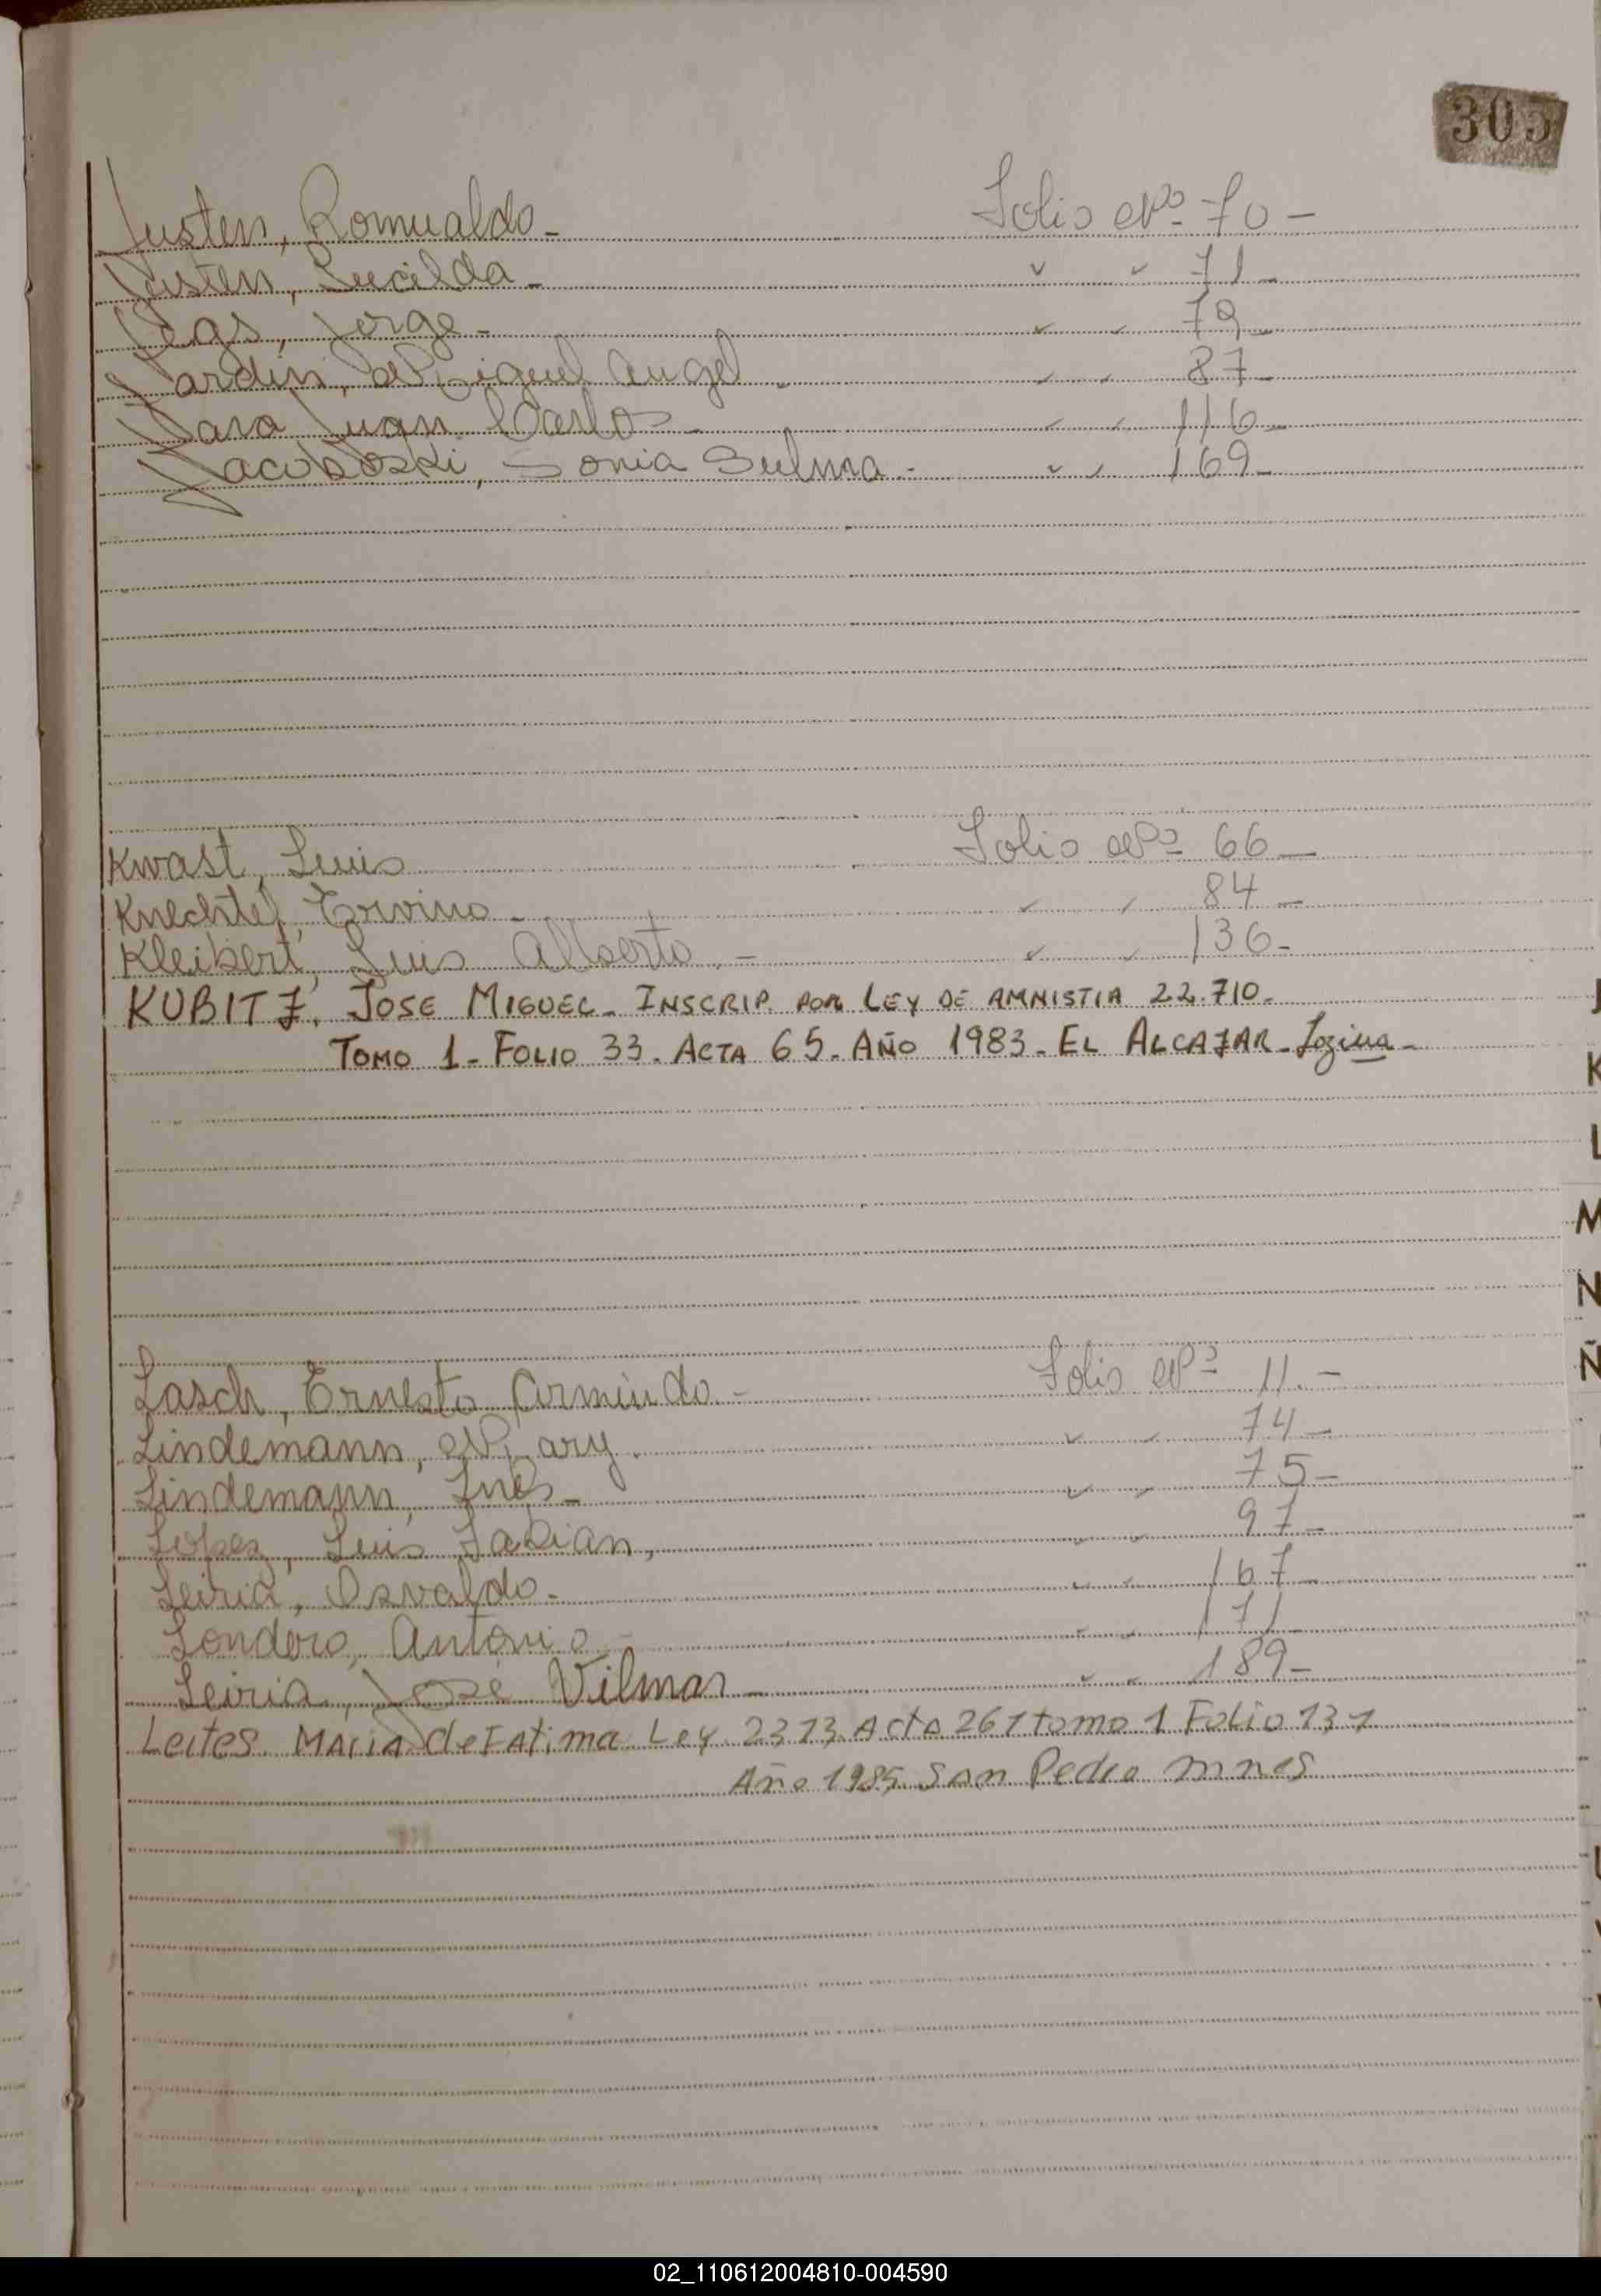 305
Justen, Romualdo - Folio Nº 70 -
Justen, Lucilda - " " 71 -
Jegs, Jorge - " " 79 -
Jardin, Miguel Angel - " " 87 -
Jara Juan Carlos - " " 116 -
Jacoboski, Sonia Sulma - " " 169 -
Kwast, Luis Folio Nº 66 -
Knechtel, Ervino - " " 84 -
Kleibert, Luis Alberto, - " " 136 -
KUBITZ, JOSE MIGUEL - INSCRIP. POR LEY DE AMNISTIA 22.710 -
TOMO 1 - FOLIO 33. ACTA 65. AÑO 1983 - EL ALCAZAR -
J
K
L
M
N
Ñ
Lasch, Ernesto Armindo - Folio Nº 11. -
Lindemann, Mary. " " 74 -
Lindemann, Ines - " " 75 -
Lopez, Luis Fabian, " " 97 -
Leiria, Osvaldo - " " 167 -
Londero, Antonio - " " 171
Leiria, José Vilmar - " " 189 -
Leites. Maria de Fatima Ley 2373. Acta 261 tomo 1 Folio 131
Año 1985 San Pedro mnes
02_110612004810-004590